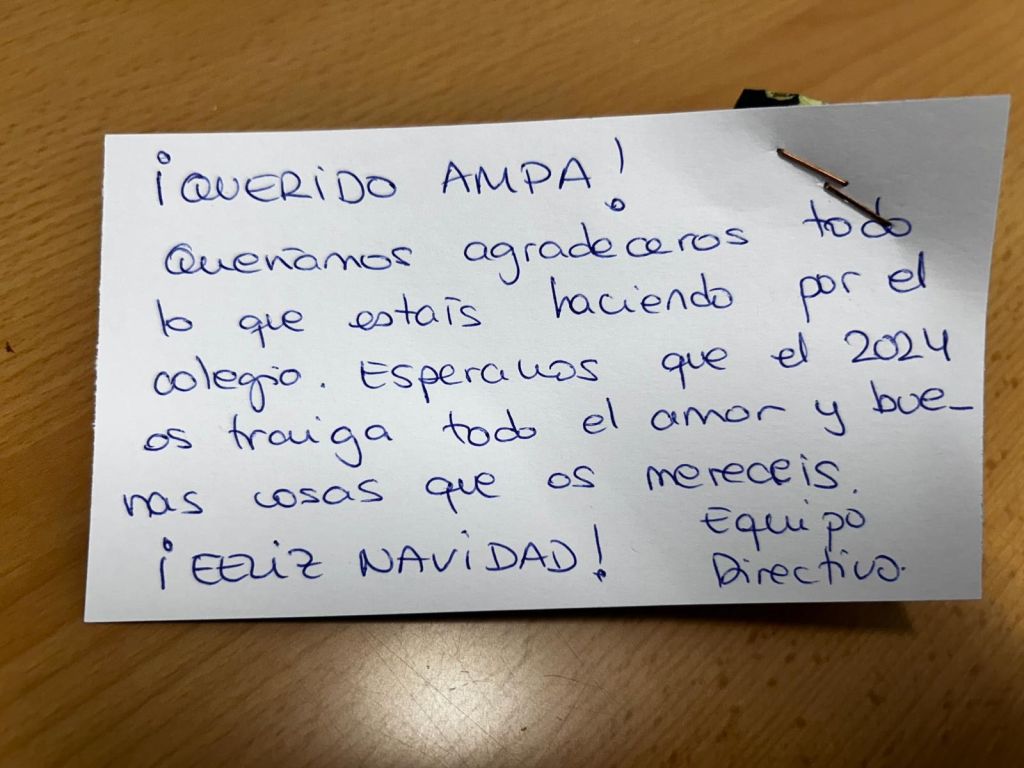 ¡QUERIDO AMPA!
Queríamos agradeceros todo
lo que estáis haciendo por el
colegio. Esperamos que el 2024
os traiga todo el amor y bue-
nas cosas que os mereceis.
¡FELIZ NAVIDAD!
Equipo
Directivo.